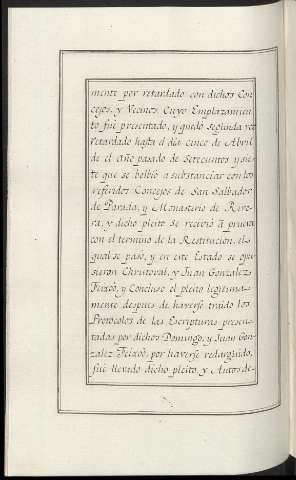 mente por retardado con dichos Con
cejos, y Vecinos Cuyo Emplazamien
to fué presentado, y quedó segunda vez
retardado hasta el dia cinco de Abril
de el Año pasado de Setecientos y sie
te que se bolbió a substanciar con los
referidos Concejos de San Salbador
de Parada, y Monasterio de Rive
ra, y dicho pleito se recivió à prueva
con el termino de la Restitucion, el
qual se pasó, y en este Estado se opu
sieron Christoval, y Juan Gonzalez
Feixoó, y Concluso el pleito legitima
mente despues de haverse traido los
Protocolos de las Escripturas presen
tadas por dichos Domingo, y Juan Gon
zalez Feixoó, por haverse redarguido,
fué llevado dicho pleito, y Autos de-